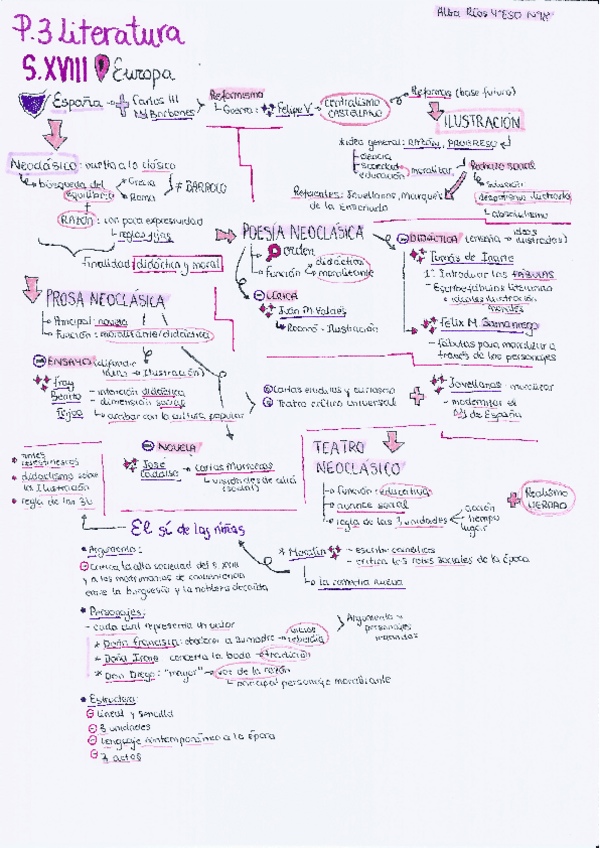 Alba Ríos 4ºESO Nº18
P.3 Literatura
S.XVIII Europa
España Carlos III
Borbones
Reformismo
Guerra: Felipe V
centralismo
CASTELLANO
Reformas (base futuro)
ILUSTRACIÓN
idea general: RAZÓN, PROGRESO
ciencia
sociedad
educación
moralizar
educación
despotismo ilustrado
absolutismo
Referentes: Jovellanos, marqués
de la Ensenada
Neoclásico: vuelta a lo clásico
búsqueda del
equilibrio
Grecia
Roma
≠ BARROCO
RAZÓN: van para expresividad
reglas fijas
Finalidad: didáctica y moral
POESÍA NEOCLÁSICA
orden
Función
didáctica
moralizante
LÍRICA
Juan M Valdés
Ilustración
DIDÁCTICA (enseña ideas
ilustradas)
Tomás de Iriarte
1º Introducir las FÁBULAS
ideales ilustración
Félix M Samaniego
- fábulas para moralizar a
través de los personajes
PROSA NEOCLÁSICA
Principal: novela
Función: moralizante/didáctica
ENSAYO (difundir
ideas → Ilustración)
Fray
Benito
Feijoo
- intención didáctica
- dimensión social
acabar con la cultura popular
Cartas eruditas y curiosas
Teatro crítico universal
Jovellanos: moralizar
- modernizar el
de España
NOVELA
José
Cadalso
→ cartas marruecas
social)
TEATRO
NEOCLÁSICO
función: educativa
avance social
regla de las 3 unidades
acción
tiempo
lugar
Realismo
VERDAD
didactismo sobre
la Ilustración
regla de las 3U
El sí de las niñas
* Moratín
- critica los roles sociales de la época
La comedia nueva
Argumento:
Critica la alta sociedad del s. XVIII
y a los matrimonios de conveniencia
entre la burguesía y la nobleza decaída
Personajes:
- cada cual representa un valor
* Doña Francisca: obedecer a su madre →
rebeldía
* Doña Irene concierta la boda → tradición
* Don Diego: "mayor" → voz de la razón
principal personaje moralizante
Argumento y
personajes
Estructura:
lineal y sencilla
3 unidades
lenguaje contemporáneo a la época
3 actos